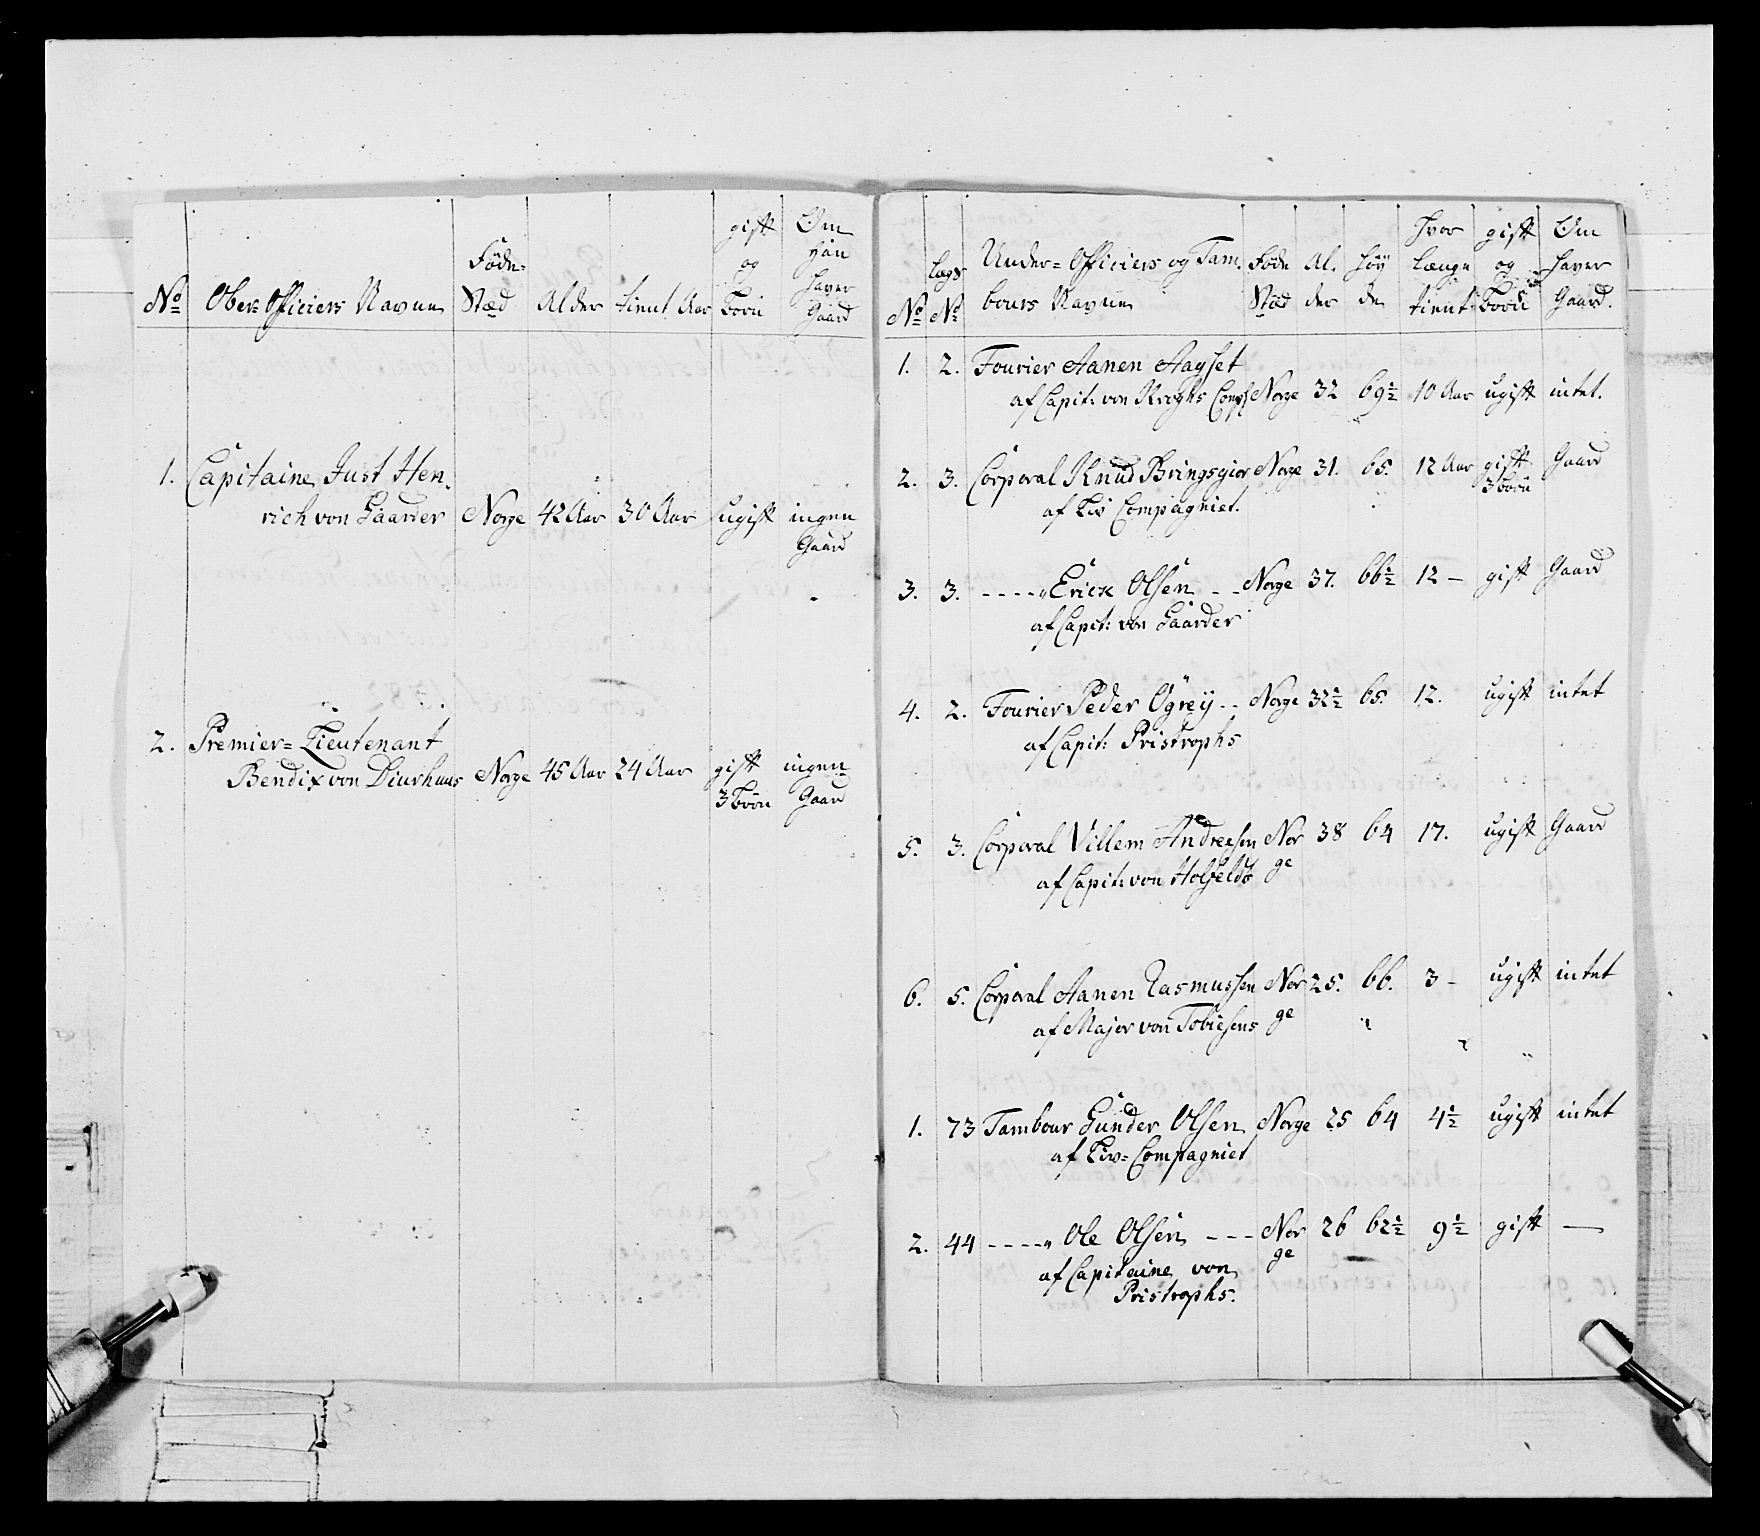 No Ober=Officiers Navne Føde=Stæd Alder tient Aar gift og Børn Om Han Haver Gaard
1. Capitaine Just Hen=
rich von Gaarder Norge 42 Aar 30 Aar ugift ingen
Gaard
2. Premier=Lieutenant
Bendix von Diurhuus Norge 45 Aar 24 Aar gift ingen
3 Børn Gaard
No Lægs No Under=Officiers og Tam=
bours Navne Føde Stæd Al=der Høyde hvor længe tient gift og Børn Om Haver Gaard.
1. 2. Fourier Aanen Aayset
af Capit: von Kroghs Comp Norge 32 69½ 10 Aar ugift intet.
2. 3. Corporal Knud Bringsgior Norge 31. 65. 12 Aar gift Gaard
3 børn
af Liv Compagniet.
3. 3. ----" Erick Olsen -- Norge 37. 66½ 12 — gift Gaard
af Capit: von Gaarder
4. 2. Fourier Peder Ögreÿ -- Norge 32½ 65. 12. ugift intet
af Capit: Pristrophs
5. 3. Corporal Villem Andreesen Nor 38 64 17. ugift Gaard
ge
af Capit: von Holfeldt
6. 5. Corporal Aanen Rasmussen Nor 25. 66. 3 - ugift intet
af Major von Tobiesens ge
1. 73 Tambour Gunder Olsen Norge 25 64 4½ ugift intet
af Liv=Compagniet
2. 44 ----" Ole Olsen --- Nor 26 62½ 9½ gift —
ge
af Capitaine von
Pristrophs.